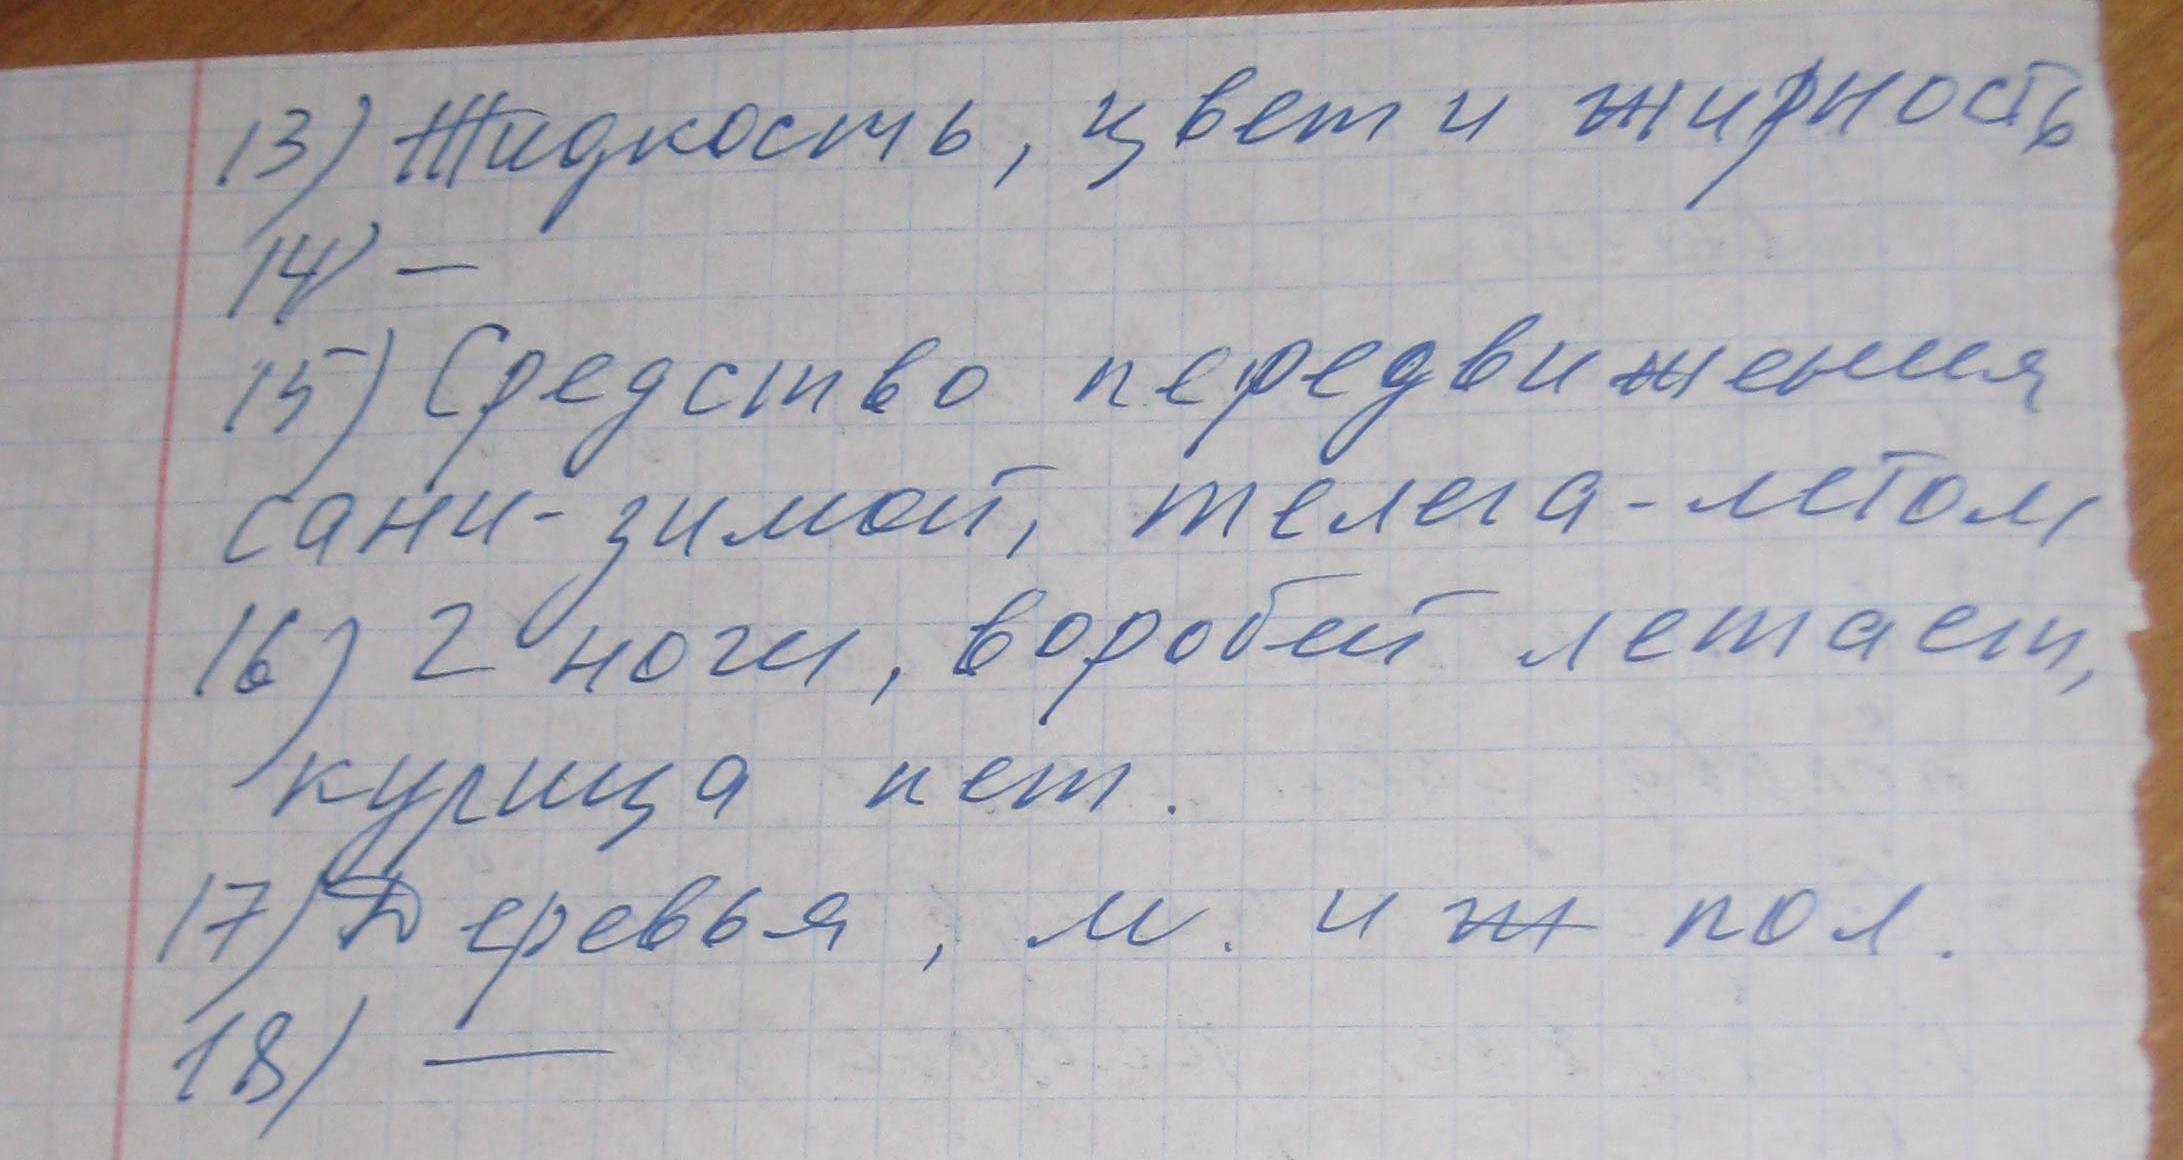 13) Жидкость, цвет и жирность
14) —
15) Средство передвижения
сани - зимой, телега - летом
16) 2 ноги, воробей летает,
курица нет.
17) Деревья, м. и ж пол.
18) —